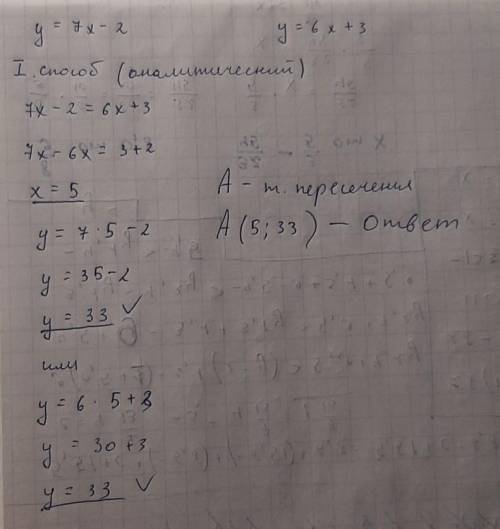 y = 7x - 2
y = 6x + 3
I. способ (аналитический)
7x - 2 = 6x + 3
7x - 6x = 3 + 2
x = 5
А - т. пересечения
А (5; 33) - Ответ
y = 7 · 5 - 2
y = 35 - 2
y = 33 ✓
или
y = 6 · 5 + 3
y = 30 + 3
y = 33 ✓